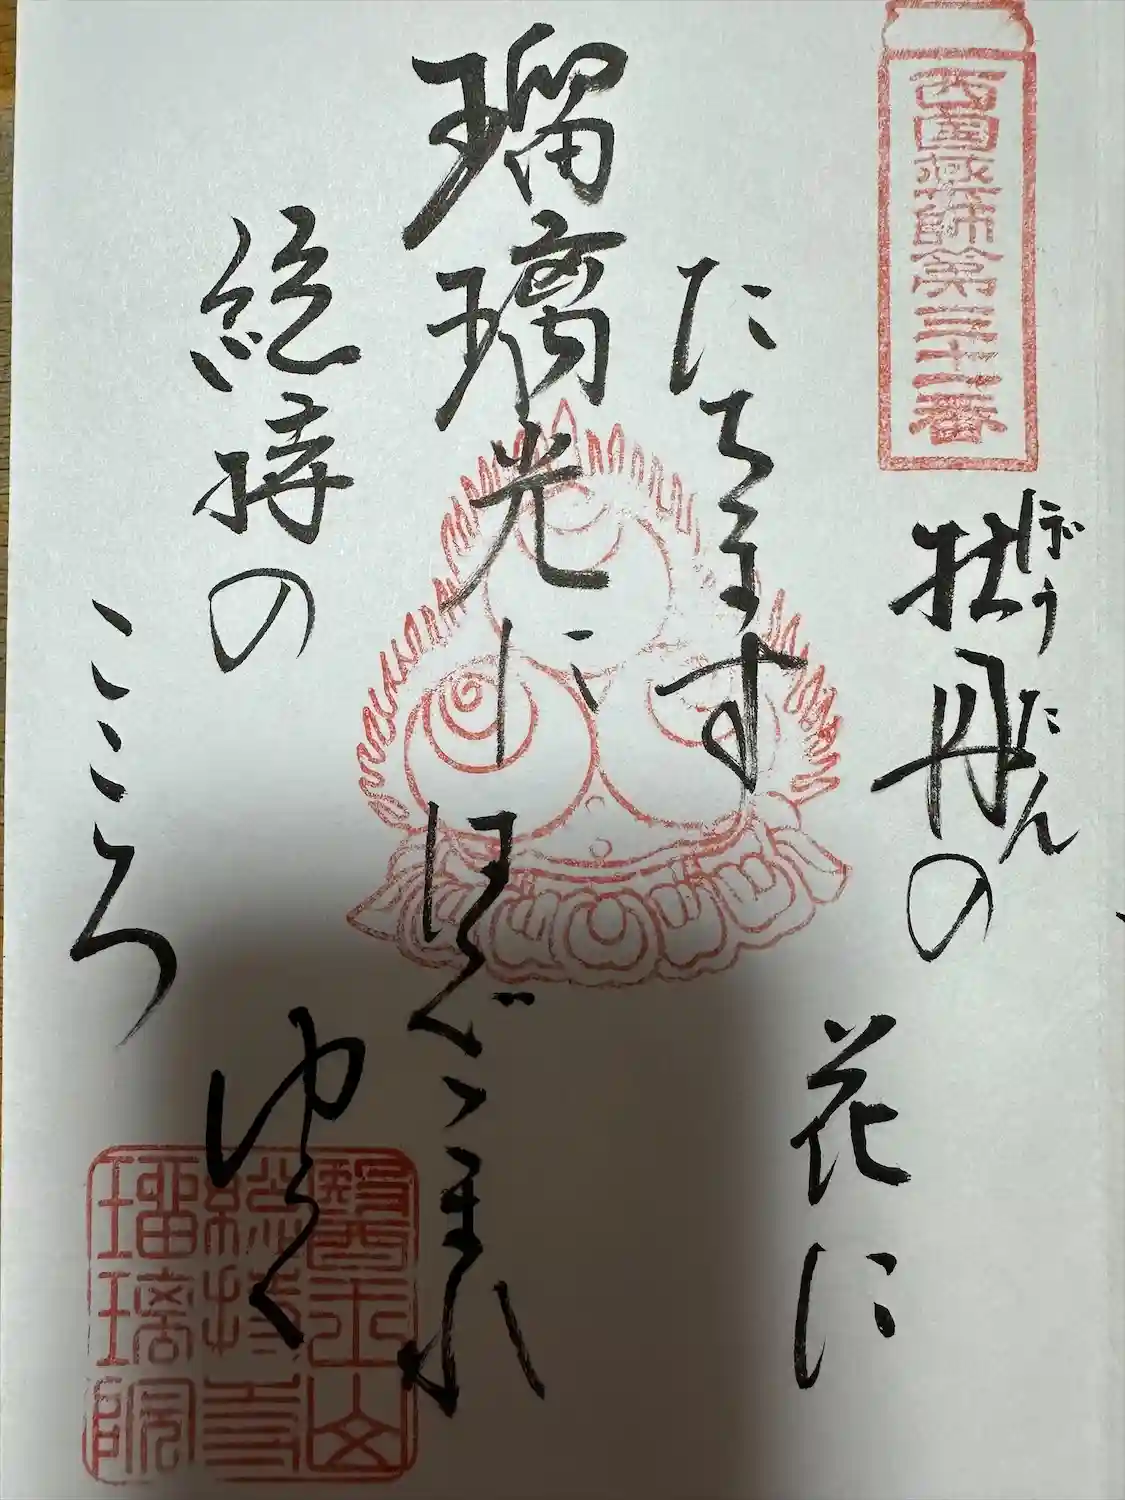 西国薬師第三十二番
牡丹の
ぼうたん
花に
瑠璃光に
はぐくまれ
ゆく
総持の
こころ
醫王山
総持寺
瑠璃院